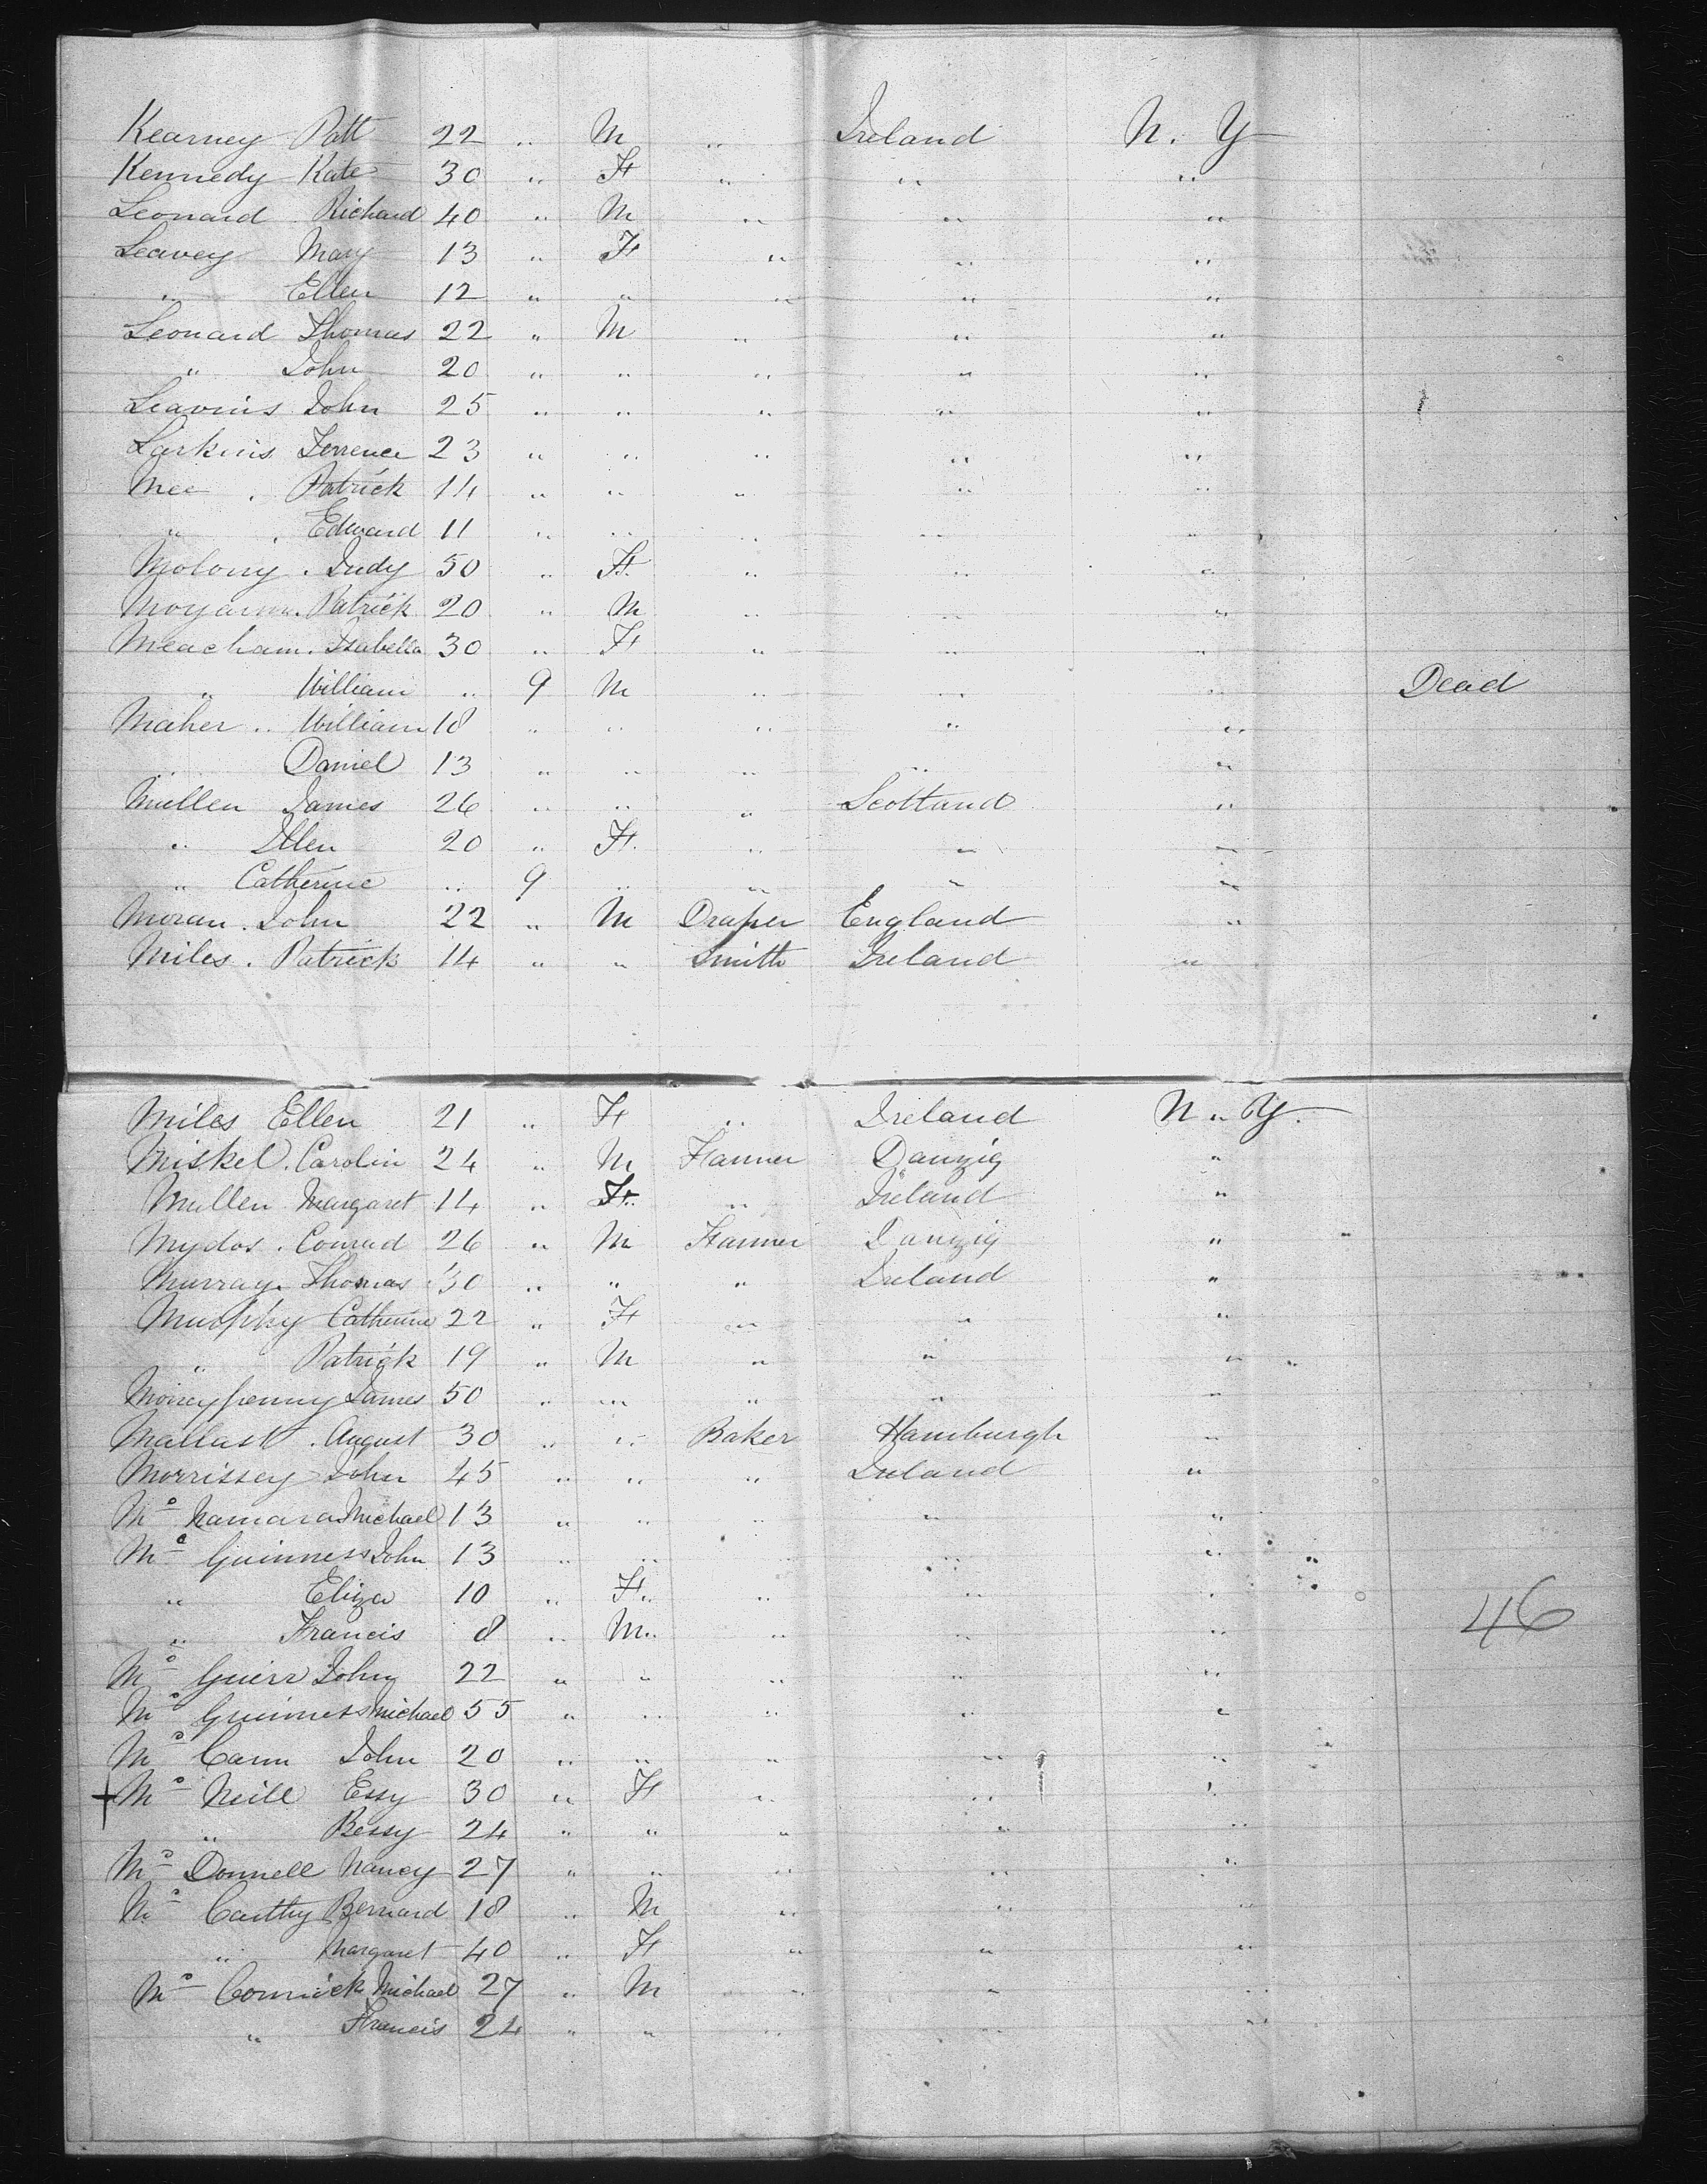 Kearney Patt 22 " M " Ireland N. Y
Kennedy Kate 30 " F " " "
Leonard Richard 40 " M " " "
Leavey Mary 13 " F " " "
" Ellen 12 " " " " "
Leonard Thomas 22 " M " " "
" John 20 " " " " "
Leavins John 25 " " " " "
Larkins Terrence 23 " " " " "
Mee . Patrick 14 " " " " "
" . Edward 11 " " " " "
Molony . Judy 50 " F. " " "
Patrick 20 " M " " "
Meacham . Isabella 30 " F " " "
" William " 9 M " " " Dead
Maher .. William 18 " " " " "
" Daniel 13 " " " " "
Mullen James 26 " " " Scotland "
" Ellen 20 " F. " " "
" Catherine " 9 " " " "
Moran . John 22 " M Draper England "
Miles . Patrick 14 " " Smith Ireland "
Miles Ellen 21 " F " Ireland N " Y.
Miskel . Carolin 24 " M Farmer Danzig "
Mullen Margaret 14 " F. " Ireland "
Mydos . Conrad 26 " M Farmer Danzig "
Murray . Thomas 30 " " " Ireland "
Murphy Catherine 22 " F " " "
" Patrick 19 " M " " "
Moneypenny James 50 " " " " "
Mallast . August 30 " " Baker Hamburgh "
Morrissey John 45 " " " Ireland "
Mc Namara Michael 13 " " " " "
Mc Guinness John 13 " " " " "
" Eliza 10 " F. " " "
" Francis 8 " M. " " " 46
Mc Guirr John 22 " " " " "
Mc Guinness Michael 55 " " " " "
Mc Cann John 20 " " " " "
+ Mc Neill Essy 30 " F " " "
" Bessy 24 " " " " "
Mc Donnell Nancy 27 " " " " "
Mc Carthy Bernard 18 " M " " "
" Margaret 40 " F " " "
Mc Cormick Michael 27 " M " " "
" Francis 24 " " " " "